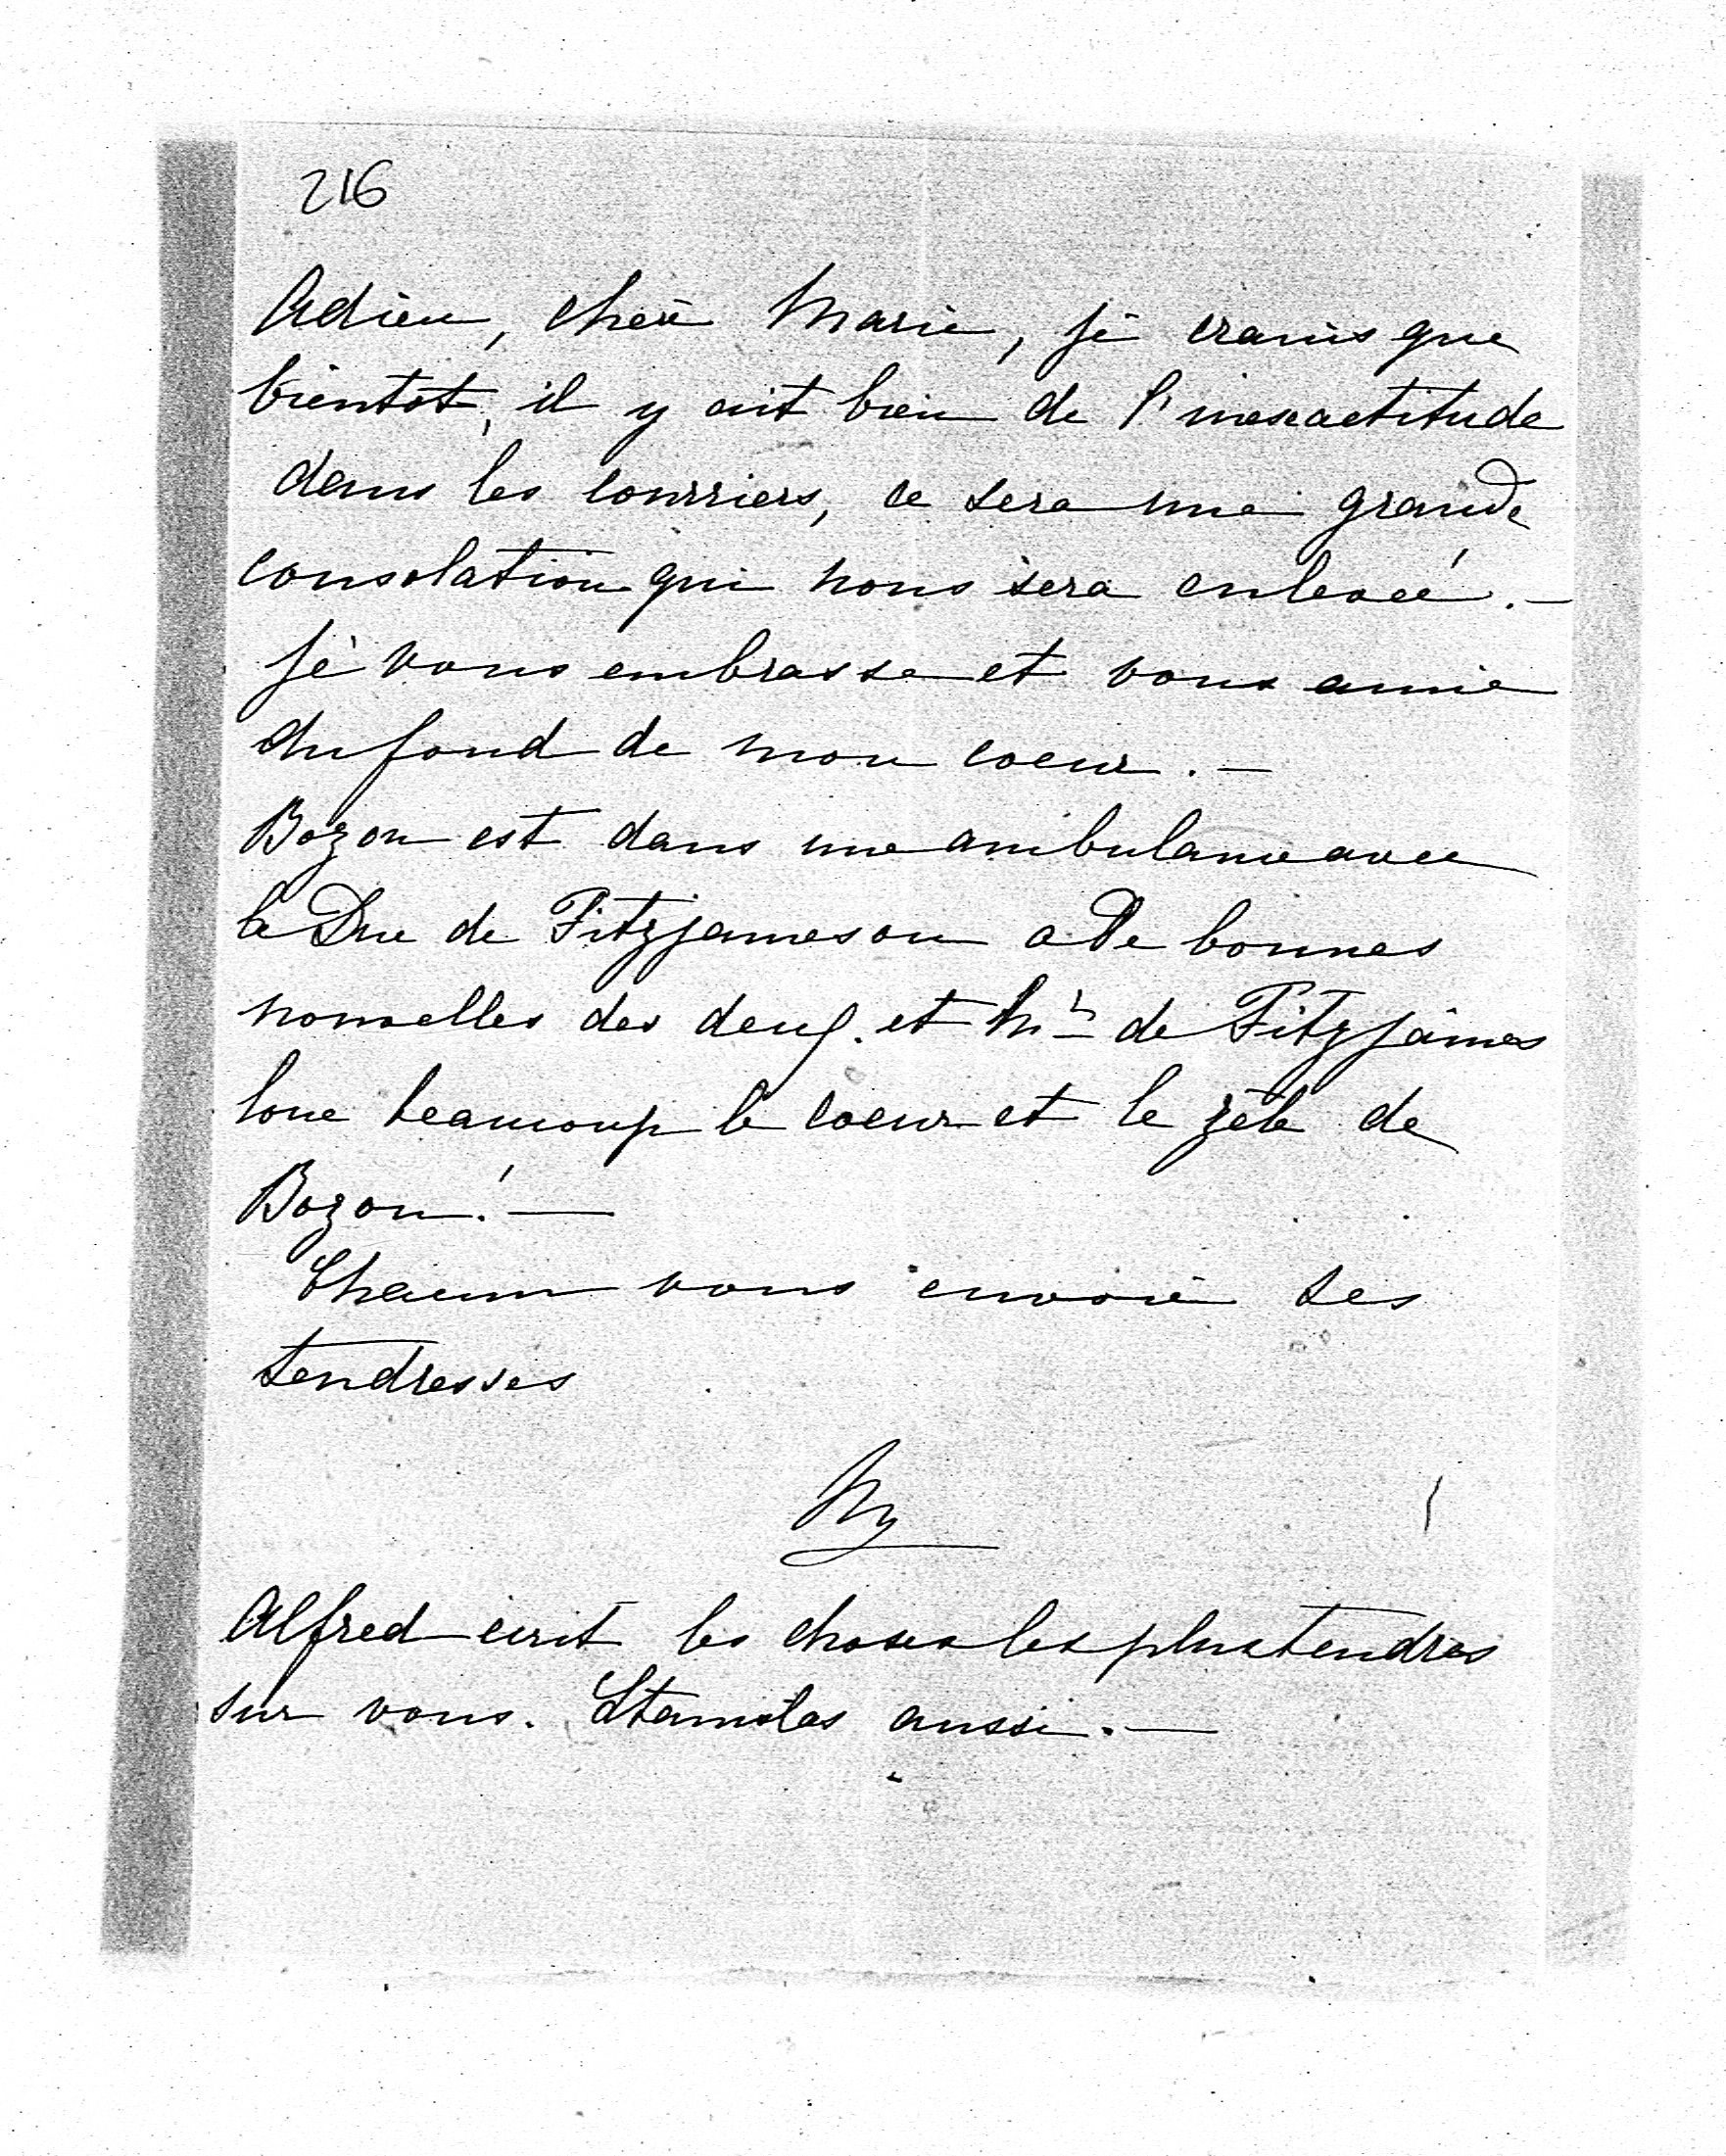 216
Adieu, chère Marie, je crains que
bientôt, il y ait bien de l'inexactitude
dans les courriers, ce sera une grande
consolation qui nous sera enlevée. —
Je vous embrasse et vous aime
du fond de mon coeur. —
Bozon est dans une ambulance avec
le Duc de Fitzjames on a de bonnes
nouvelles des deux. et Mr de Fitzjames
loue beaucoup le coeur et le zèle de
Bozon! —
Chacun vous envoie ses
tendresses
Alfred écrit les choses les plus tendres
sur vous. Stanislas aussi. —